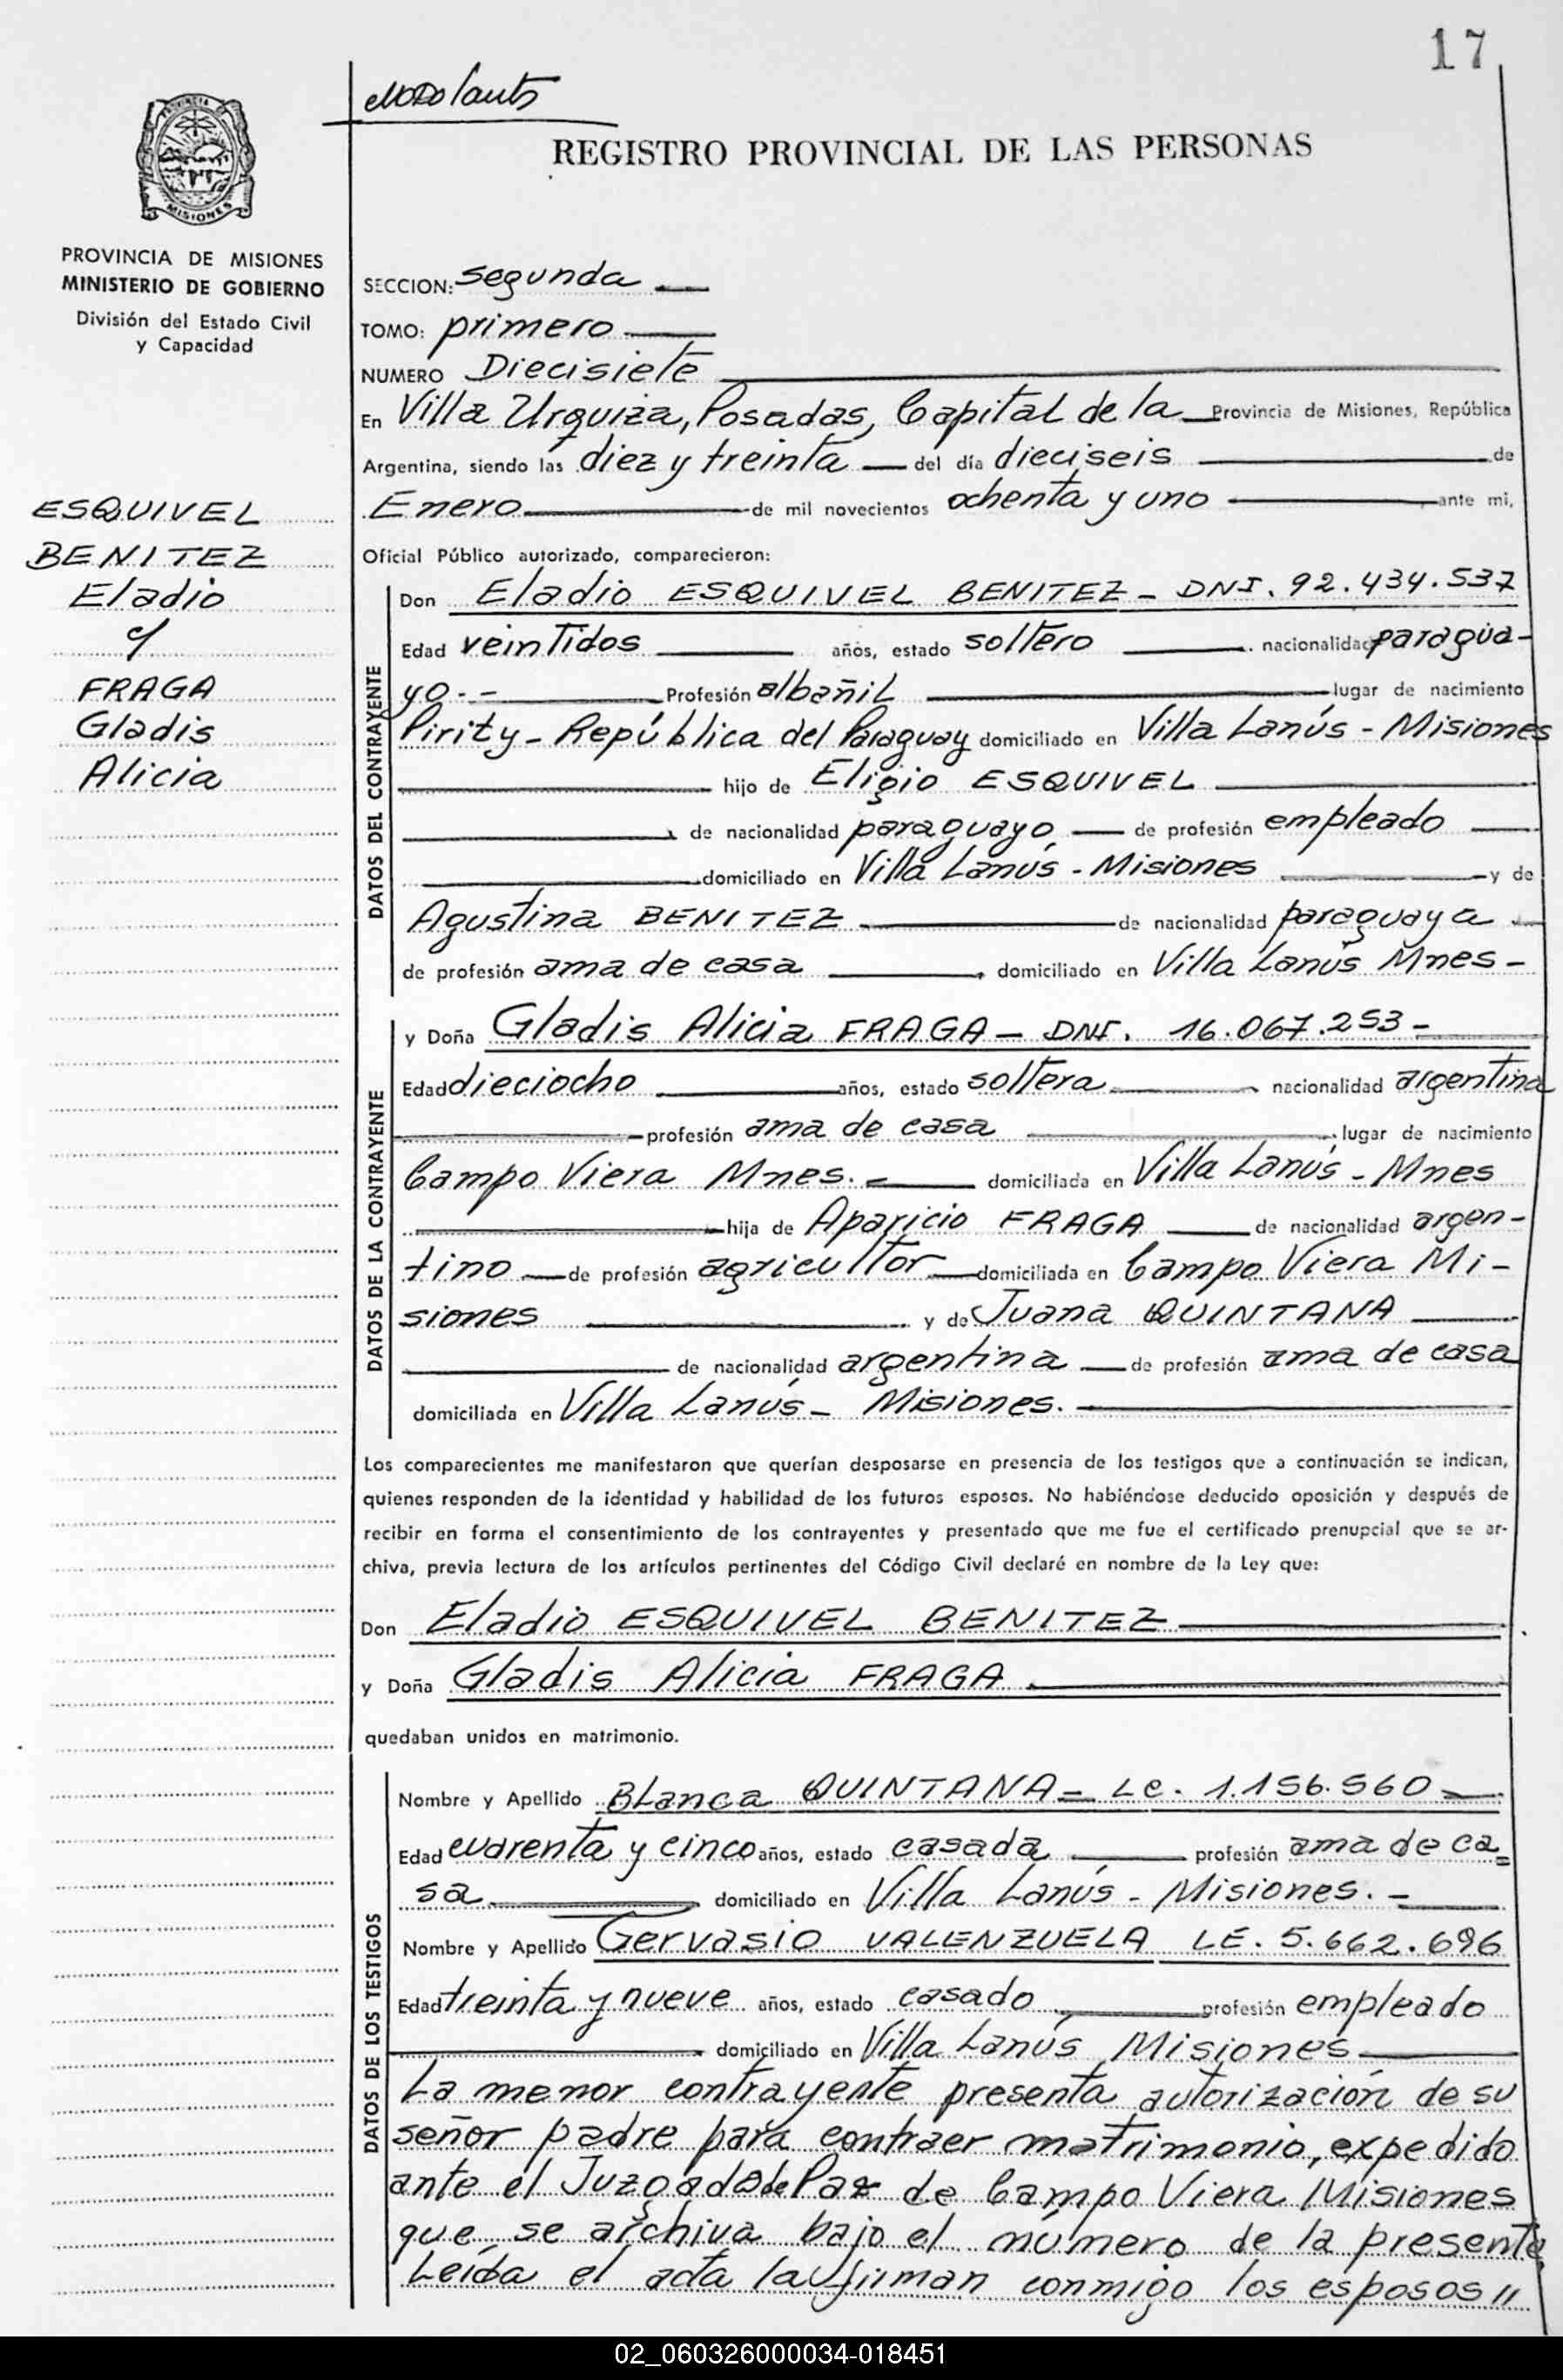 17
REGISTRO PROVINCIAL DE LAS PERSONAS
PROVINCIA
MISIONES
PROVINCIA DE MISIONES
MINISTERIO DE GOBIERNO
División del Estado Civil
y Capacidad
SECCION: segunda
TOMO: primero
NUMERO Diecisiete
En Villa Urquiza, Posadas, Capital de la Provincia de Misiones, República
Argentina, siendo las diez y treinta del día dieciseis de
Enero de mil novecientos ochenta y uno ante mi,
Oficial Público autorizado, comparecieron:
ESQUIVEL
BENITEZ
Eladio
y
FRAGA
Gladis
Alicia
DATOS DEL CONTRAYENTE
Don Eladio ESQUIVEL BENITEZ - DNI. 92.434.537
Edad veintidos años, estado soltero nacionalidad paragua-
yo.- Profesión albañil lugar de nacimiento
Pirity - República del Paraguay domiciliado en Villa Lanús - Misiones
hijo de Eligio ESQUIVEL
de nacionalidad paraguayo de profesión empleado
domiciliado en Villa Lanús - Misiones y de
Agustina BENITEZ de nacionalidad paraguaya
de profesión ama de casa domiciliado en Villa Lanús Mnes -
DATOS DE LA CONTRAYENTE
y Doña Gladis Alicia FRAGA - DNI. 16.067.253 -
Edad dieciocho años, estado soltera nacionalidad argentina
profesión ama de casa lugar de nacimiento
Campo Viera Mnes. - domiciliada en Villa Lanús - Mnes
hija de Aparicio FRAGA de nacionalidad argen-
tino de profesión agricultor domiciliada en Campo Viera Mi-
siones y de Juana QUINTANA
de nacionalidad argentina de profesión ama de casa
domiciliada en Villa Lanús - Misiones.
Los comparecientes me manifestaron que querían desposarse en presencia de los testigos que a continuación se indican,
quienes responden de la identidad y habilidad de los futuros esposos. No habiéndose deducido oposición y después de
recibir en forma el consentimiento de los contrayentes y presentado que me fue el certificado prenupcial que se ar-
chiva, previa lectura de los artículos pertinentes del Código Civil declaré en nombre de la Ley que:
Don Eladio ESQUIVEL BENITEZ
y Doña Gladis Alicia FRAGA
quedaban unidos en matrimonio.
DATOS DE LOS TESTIGOS
Nombre y Apellido Blanca QUINTANA - LC. 1.156.560
Edad cuarenta y cinco años, estado casada profesión ama de ca=
sa domiciliado en Villa Lanús - Misiones. -
Nombre y Apellido Gervasio VALENZUELA LE. 5.662.696
Edad treinta y nueve años, estado casado profesión empleado
domiciliado en Villa Lanús Misiones
La menor contrayente presenta autorización de su
señor padre para contraer matrimonio, expedido
ante el Juzgado de Paz de Campo Viera Misiones
que se archiva bajo el número de la presente,
Leída el acta la firman conmigo los esposos //
02_060326000034-018451